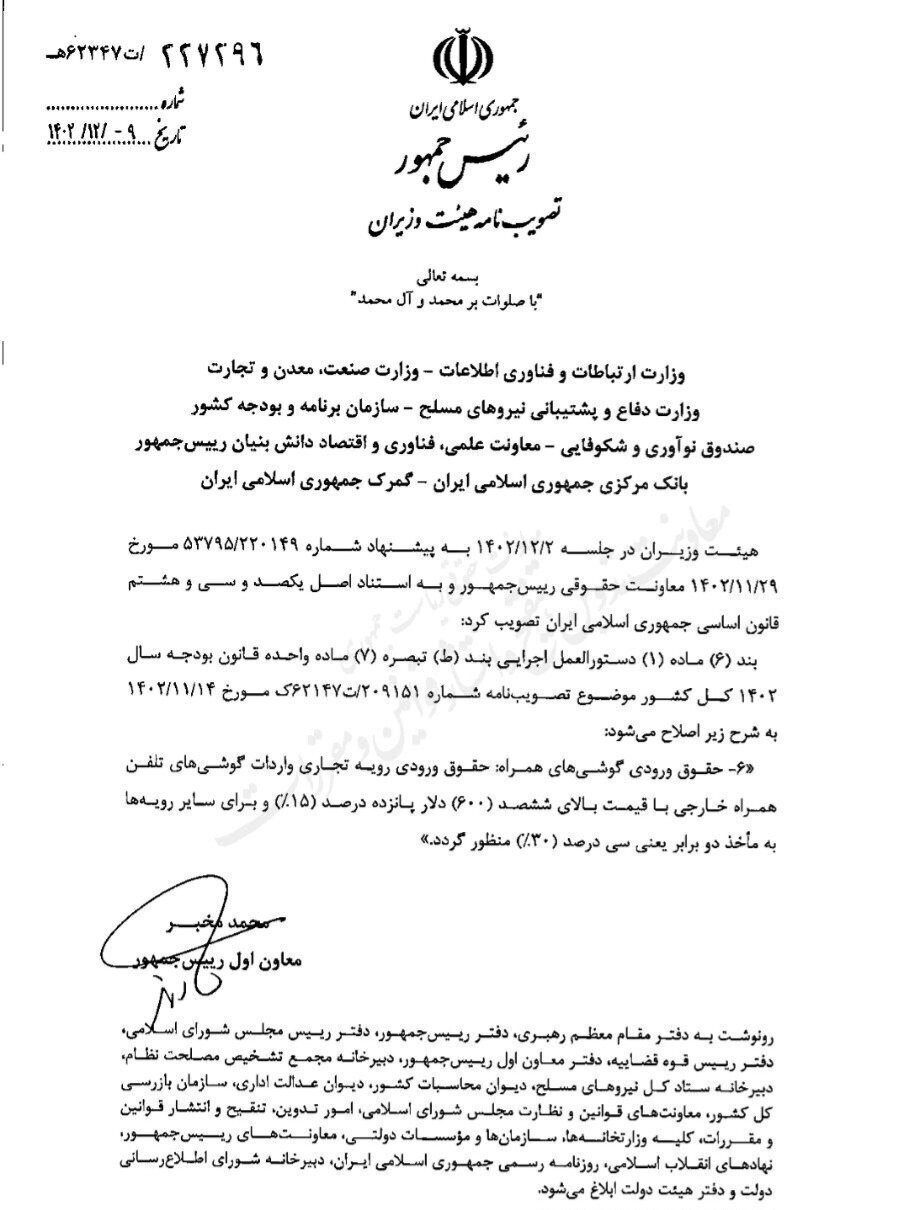 ۲۲۷۲۹۶ /ت۶۲۳۴۷هـ
شماره ......................
تاریخ ۹ - /۱۲/ ۱۴۰۲
جمهوری اسلامی ایران
رئیس جمهور
تصویب نامه هیئت وزیران
بسمه تعالی
"با صلوات بر محمد و آل محمد"
وزارت ارتباطات و فناوری اطلاعات – وزارت صنعت، معدن و تجارت
وزارت دفاع و پشتیبانی نیروهای مسلح – سازمان برنامه و بودجه کشور
صندوق نوآوری و شکوفایی – معاونت علمی، فناوری و اقتصاد دانش بنیان رییس‌جمهور
بانک مرکزی جمهوری اسلامی ایران – گمرک جمهوری اسلامی ایران
هیئت وزیران در جلسه ۱۴۰۲/۱۲/۲ به پیشنهاد شماره ۵۳۷۹۵/۲۲۰۱۴۹ مورخ
۱۴۰۲/۱۱/۲۹ معاونت حقوقی رییس‌جمهور و به استناد اصل یکصد و سی و هشتم
قانون اساسی جمهوری اسلامی ایران تصویب کرد:
بند (۶) ماده (۱) دستورالعمل اجرایی بند (ط) تبصره (۷) ماده واحده قانون بودجه سال
۱۴۰۲ کل کشور موضوع تصویب‌نامه شماره ۲۰۹۱۵۱/ت۶۲۱۴۷ک مورخ ۱۴۰۲/۱۱/۱۴
به شرح زیر اصلاح می‌شود:
«۶- حقوق ورودی گوشی‌های همراه: حقوق ورودی رویه تجاری واردات گوشی‌های تلفن
همراه خارجی با قیمت بالای ششصد (۶۰۰) دلار پانزده درصد (۱۵٪) و برای سایر رویه‌ها
به مأخذ دو برابر یعنی سی درصد (۳۰٪) منظور گردد.»
محمد مخبر
معاون اول رییس‌جمهور
رونوشت به دفتر مقام معظم رهبری، دفتر رییس‌جمهور، دفتر رییس مجلس شورای اسلامی،
دفتر رییس قوه قضاییه، دفتر معاون اول رییس‌جمهور، دبیرخانه مجمع تشخیص مصلحت نظام،
دبیرخانه ستاد کل نیروهای مسلح، دیوان محاسبات کشور، دیوان عدالت اداری، سازمان بازرسی
کل کشور، معاونت‌های قوانین و نظارت مجلس شورای اسلامی، امور تدوین، تنقیح و انتشار قوانین
و مقررات، کلیه وزارتخانه‌ها، سازمان‌ها و مؤسسات دولتی، معاونت‌های رییس‌جمهور،
نهادهای انقلاب اسلامی، روزنامه رسمی جمهوری اسلامی ایران، دبیرخانه شورای اطلاع‌رسانی
دولت و دفتر هیئت دولت ابلاغ می‌شود.